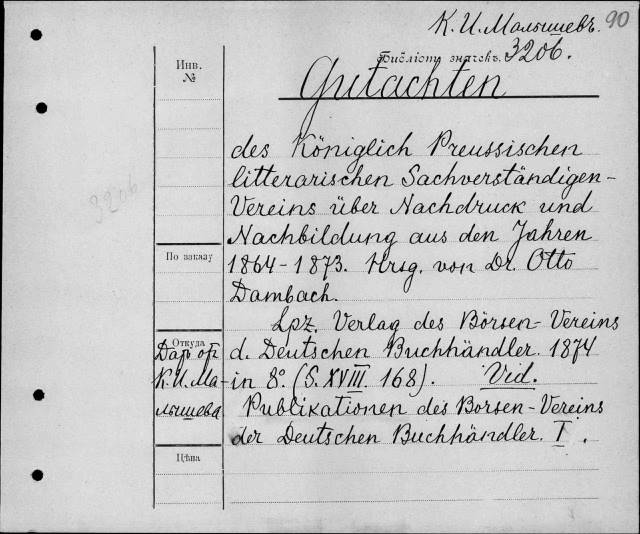 К. И. Малышевъ. 90
Библіот. значекъ. 3206.
Инв. №
Gutachten
des Königlich Preussischen
litterarischen Sachverständigen-
Vereins über Nachdruck und
3206
Nachbildung aus den Jahren
По заказу
1864-1873. Hrsg. von Dr. Otto
Dambach.
Lpz. Verlag des Börsen-Vereins
Откуда
Даръ отъ
d. Deutschen Buchhändler. 1874
К. И. Ма-
in 8º. (S. XVIII. 168). Vid.
лышева
Publikationen des Borsen-Vereins
der Deutschen Buchhändler. I.
Цѣна